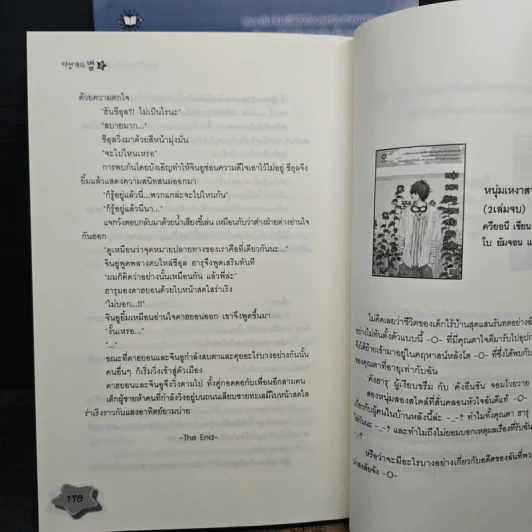 다섯개의 별 2
ด้วยความตกใจ
"ฮันชีอุล?! ไม่เป็นไรนะ"
"สบายมาก..."
ชีอุลวิ่งมาด้วยสีหน้ามุ่งมั่น
"จะไปไหนเหรอ"
การพบกันโดยบังเอิญทำให้จินอูซ่อนความดีใจเอาไว้ไม่อยู่ ชีอุลจึง
ยิ้มแล้วแสดงความสนิทสนมออกมา
"ก็รู้อยู่แล้วนี่...พวกแกล่ะจะไปไหนกัน"
"ก็รู้อยู่แล้วนี่นา..."
แจกวังตอบกลับมาด้วยน้ำเสียงขี้เล่น เหมือนกับว่าต่างฝ่ายต่างอ่านใจ
กันออก
"ดูเหมือนว่าจุดหมายปลายทางของเราคือที่เดียวกันนะ..."
จินอูพูดพลางตบไหล่ชีอุล ฮารุจึงพูดเสริมทันที
"ผมก็คิดว่าอย่างนั้นเหมือนกัน แล้วพี่ล่ะ"
ฮารุมองดาฮยอนด้วยใบหน้าสดใสร่าเริง
"ไม่บอก...!!"
จินอูยิ้มเหมือนอ่านใจดาฮยอนออก เขาจึงพูดขึ้นมา
"งั้นเหรอ..."
"..."
ขณะที่ดาฮยอนและจินอูกำลังสบตาและคุยอะไรบางอย่างกันนั้น
คนอื่นๆ ก็เริ่มวิ่งเข้าสู่ตัวเมือง
ดาฮยอนและจินอูจึงวิ่งตามไป ทั้งคู่กอดคอกับเพื่อนอีกสามคน
เด็กผู้ชายห้าคนที่กำลังวิ่งอยู่บนถนนเลียบชายทะเลมีใบหน้าสดใส
ร่าเริงราวกับแสงอาทิตย์ยามบ่าย
-The End-
178
หนุ่มเหงาสา
(2เล่มจบ)
ควียอนี เขียน
โบ ยัมจอน แ
ไม่คิดเลยว่าชีวิตของเด็กไร้บ้านสุดแสนรันทดอย่างฉั
อย่างไม่ทันตั้งตัวแบบนี้ -O- ที่มีคุณตาใจดีมารับไปอุปก
จึงได้ย้ายเข้ามาอยู่ในคฤหาสน์หลังโต -O- ที่ซึ่งได้พบกับ
ของคุณตาที่อายุเท่ากับฉัน
'คังฮารุ' ผู้เงียบขรึม กับ 'คังอึนชัน' จอมโวยวาย
สองหนุ่มสองสไตล์ที่สั่นคลอนหัวใจฉันดีแท้ -O-
เกี่ยวกับผู้คนในบ้านหลังนี้ล่ะ -_-? ทำไมทั้งคุณตา ฮารุ
ใส่ฉันนะ -_-? และทำไมถึงไม่ยอมบอกเหตุผลเรื่องที่รับฉัน
หรือว่าจะมีอะไรบางอย่างเกี่ยวกับอดีตของฉันที่พว
น่าสงสัยจัง -O-